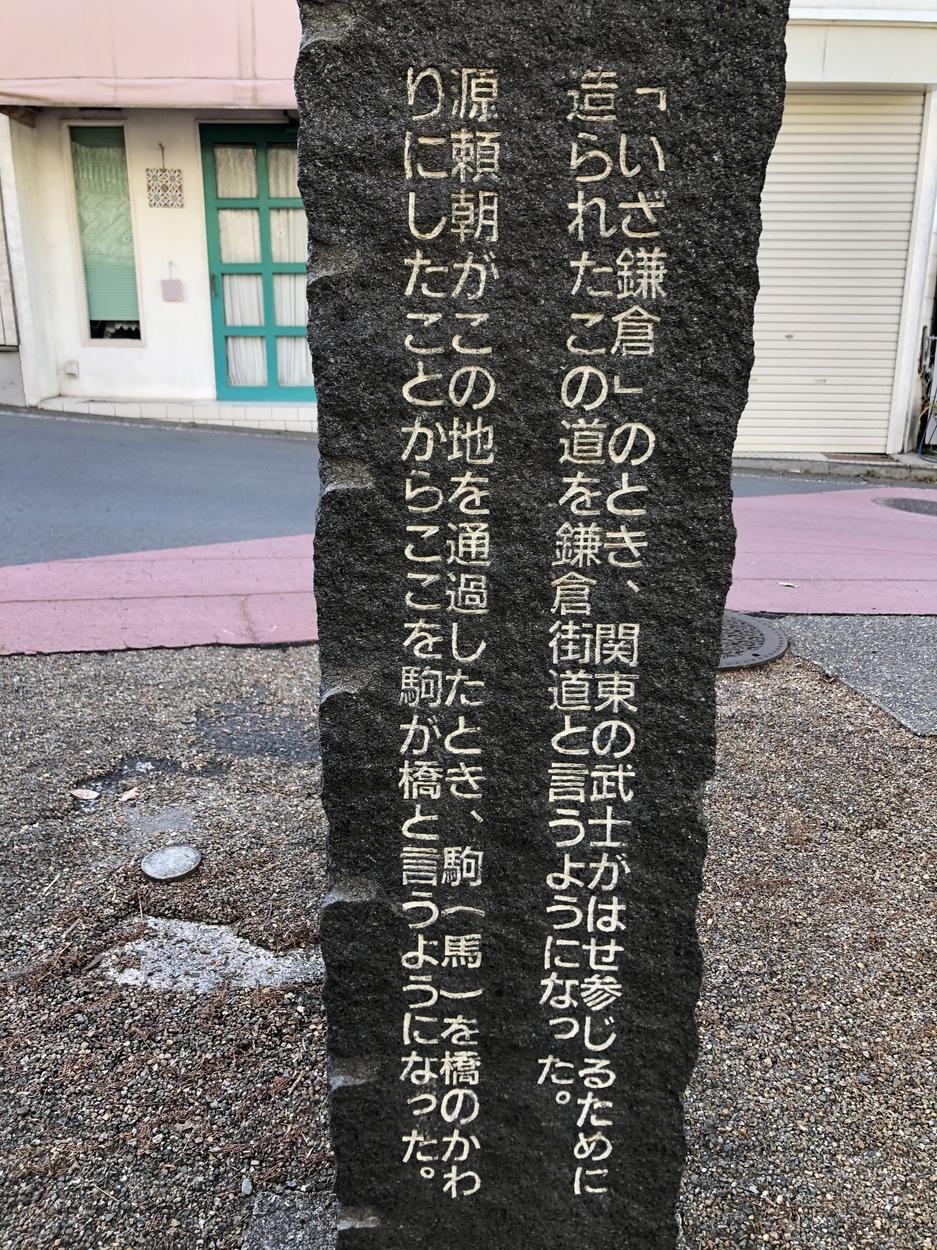 「いざ鎌倉」のとき、関東の武士がはせ参じるために
造られたこの道を鎌倉街道と言うようになった。
源頼朝がこの地を通過したとき、駒（馬）を橋のかわ
りにしたことからここを駒が橋と言うようになった。